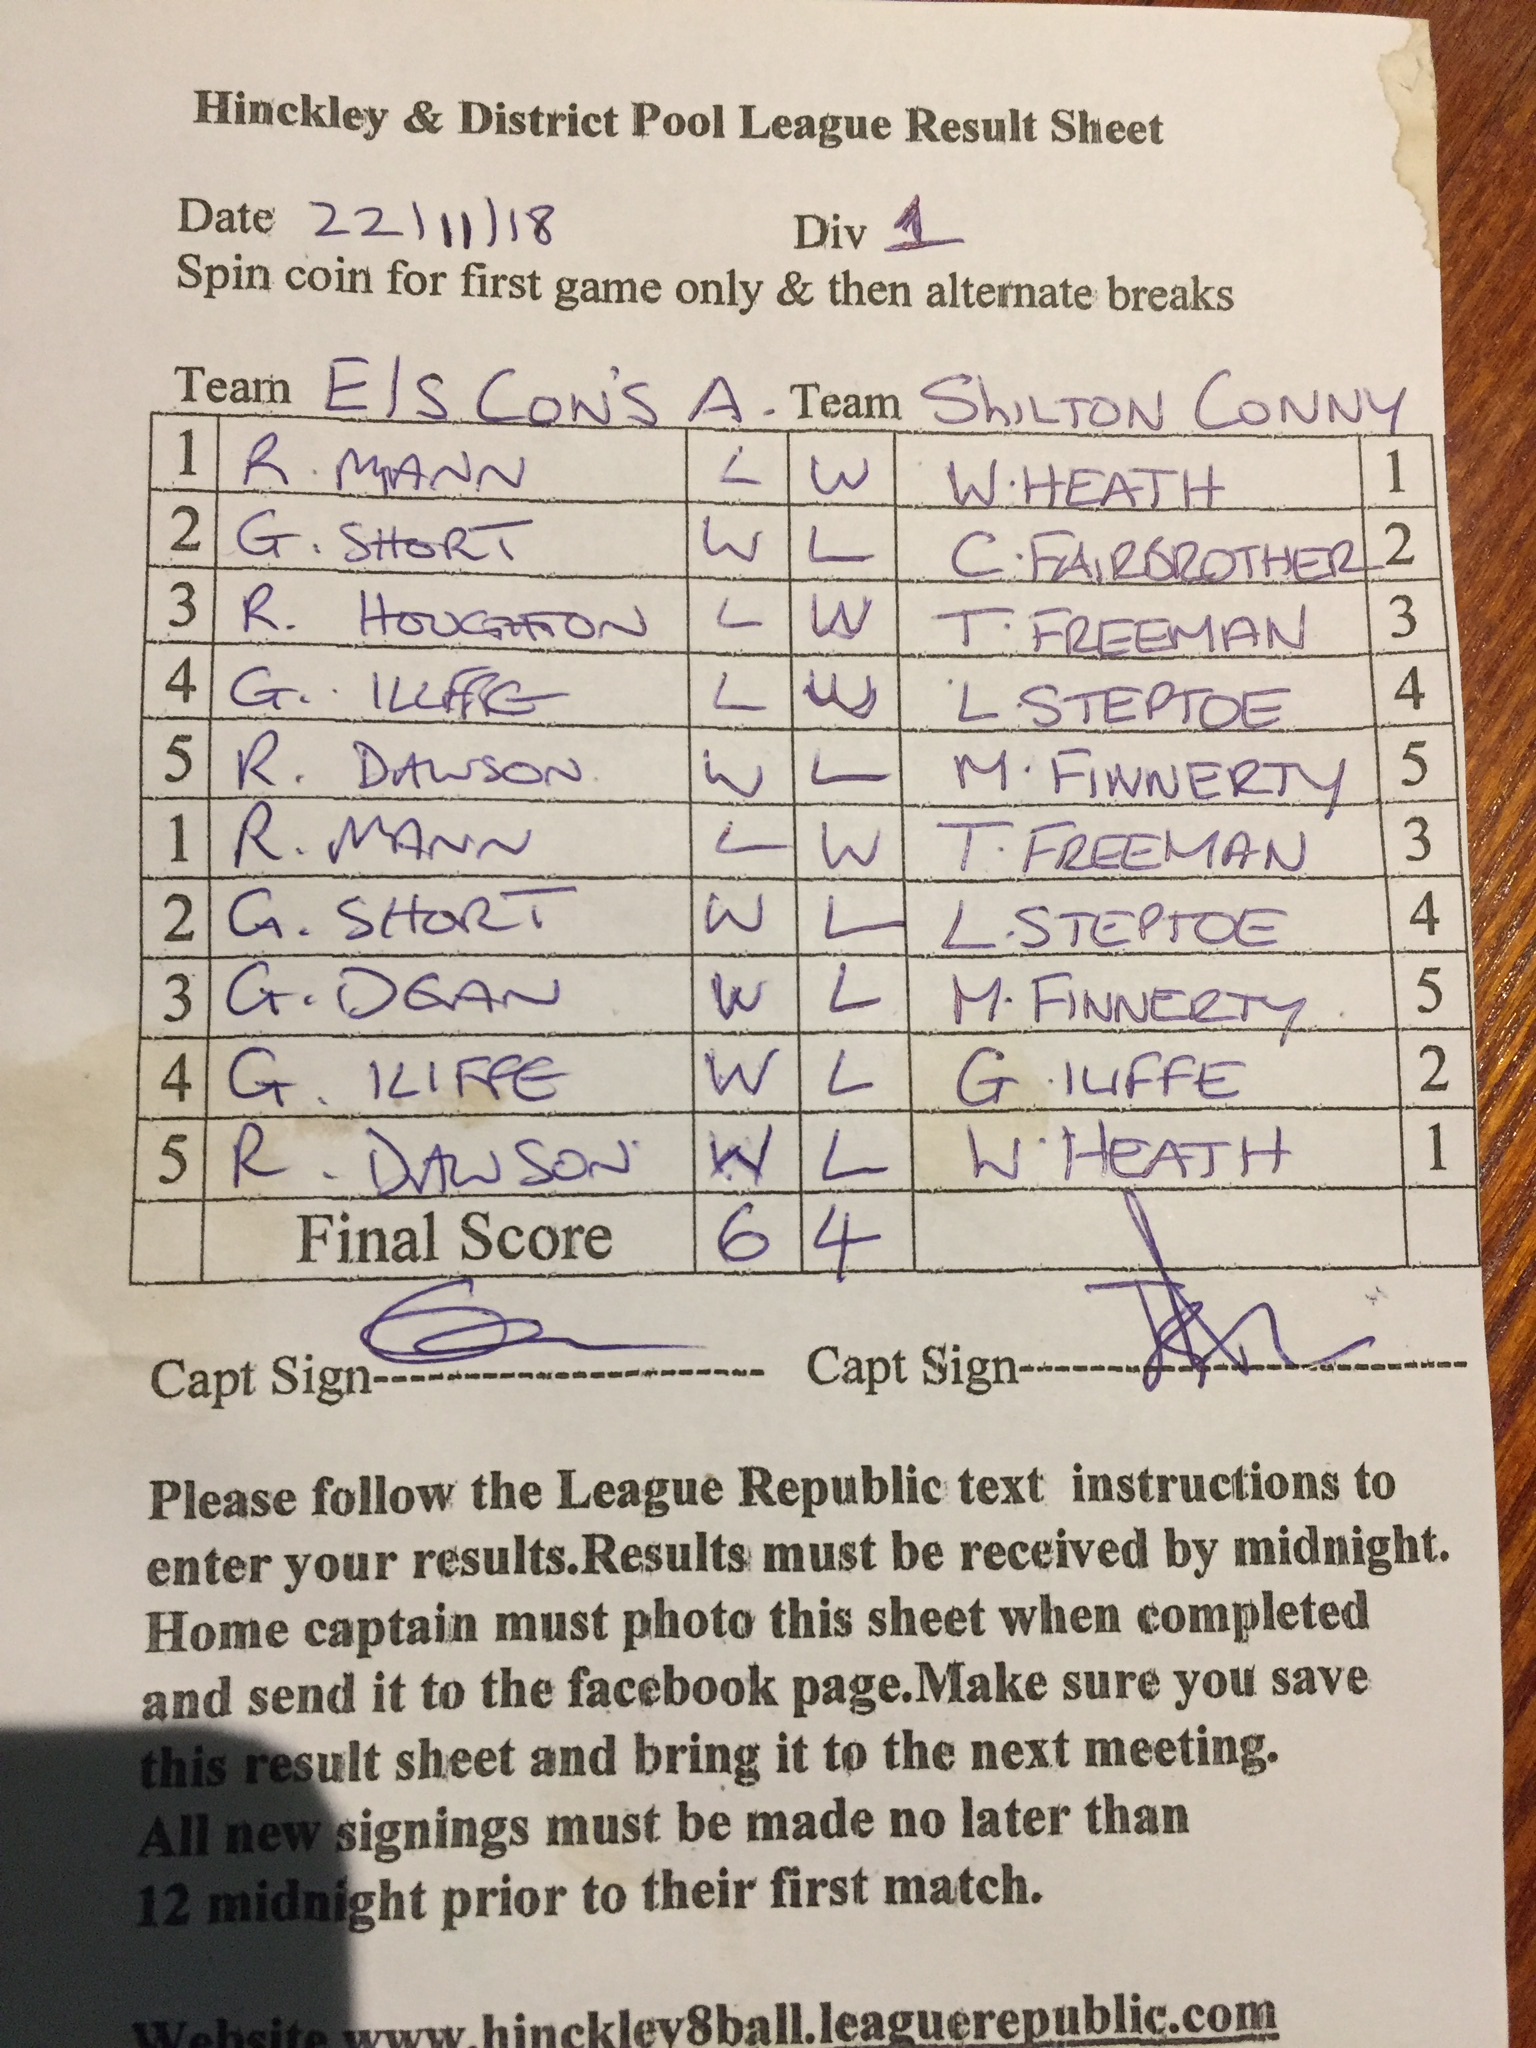 Hinckley & District Pool League Result Sheet
Date 22/11/18 Div 1
Spin coin for first game only & then alternate breaks
Team E/S CON'S A. Team SHILTON CONNY
1 R. MANN L W W. HEATH 1
2 G. SHORT W L C. FAIRBROTHER 2
3 R. HOUGHTON L W T. FREEMAN 3
4 G. ILIFFE L W L. STEPTOE 4
5 R. DAWSON W L M. FINNERTY 5
1 R. MANN L W T. FREEMAN 3
2 G. SHORT W L L. STEPTOE 4
3 G. DEAN W L M. FINNERTY 5
4 G. ILIFFE W L G. ILIFFE 2
5 R. DAWSON W L W. HEATH 1
Final Score 6 4
Capt Sign---------------------- Capt Sign--------------------------
Please follow the League Republic text instructions to
enter your results.Results must be received by midnight.
Home captain must photo this sheet when completed
and send it to the facebook page.Make sure you save
this result sheet and bring it to the next meeting.
All new signings must be made no later than
12 midnight prior to their first match.
Website www.hinckley8ball.leaguerepublic.com